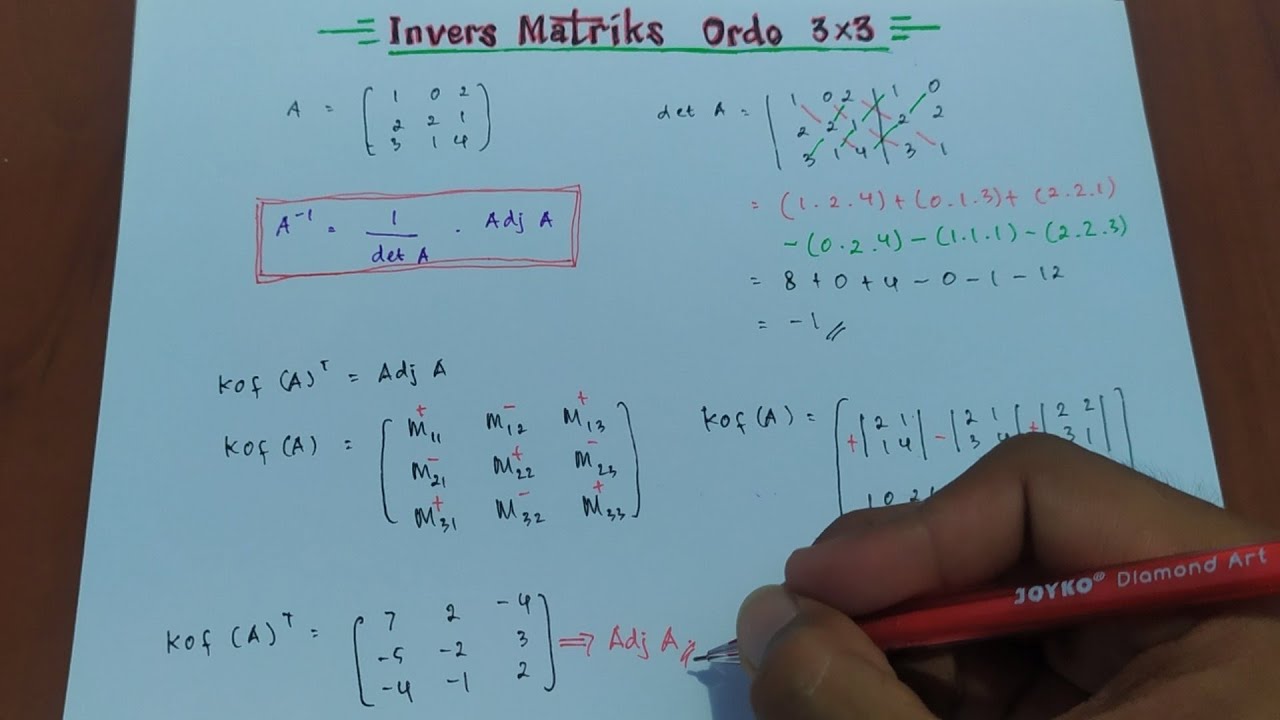 Invers Matriks Ordo 3×3
A = ( 1 0 2
2 2 1
3 1 4 )
A⁻¹ = 1 / det A . Adj A
det A = | 1 0 2 | 1 0
2 2 1 | 2 2
3 1 4 | 3 1
= (1.2.4) + (0.1.3) + (2.2.1)
- (0.2.4) - (1.1.1) - (2.2.3)
= 8 + 0 + 4 - 0 - 1 - 12
= -1 //
Kof (A)ᵀ = Adj A
Kof (A) = ( +M₁₁ -M₁₂ +M₁₃
-M₂₁ +M₂₂ -M₂₃
+M₃₁ -M₃₂ +M₃₃ )
Kof (A) = [ +| 2 1 | -| 2 1 | +| 2 2 | ]
| 1 4 | | 3 4 | | 3 1 |
| 0 2 |
Kof (A)ᵀ = [ 7 2 -4
-5 -2 3
-4 -1 2 ] ⇒ Adj A //
JOYKO® Diamond Art